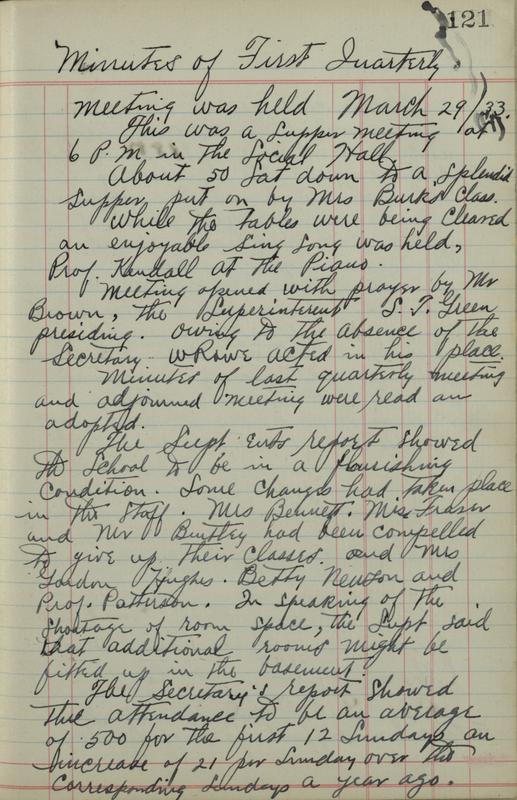 121
Minutes of First Quarterly.
meeting was held March 29/33.
This was a supper meeting at
6 P.M. in the Social Hall.
About 50 sat down to a splendid
supper put on by Mrs Burks Class.
While the tables were being cleared
an enjoyable sing song was held,
Prof. Kendall at the Piano.
Meeting opened with prayer by Mr
Brown, the Superintent S. T. Green
presiding. owing to the absence of the
Secretary WRowe acted in his place.
Minutes of last quarterly meeting
and adjourned meeting were read an
adopted.
The Supt Ents report showed
the School to be in a flourishing
condition. Some changes had taken place
in the Staff. Mrs Bennett. Miss Fraser
and Mr Buttley had been compelled
to give up their classes. and Mrs
Gordon Hughes. Betty Newson and
Prof. Patterson. In speaking of the
shortage of room space, the Supt said
that additional rooms might be
fitted up in the basement.
The Secretary's report showed
the attendance to be an average
of 500 for the first 12 Sundays an
increase of 21 per Sunday over the
corresponding Sundays a year ago.